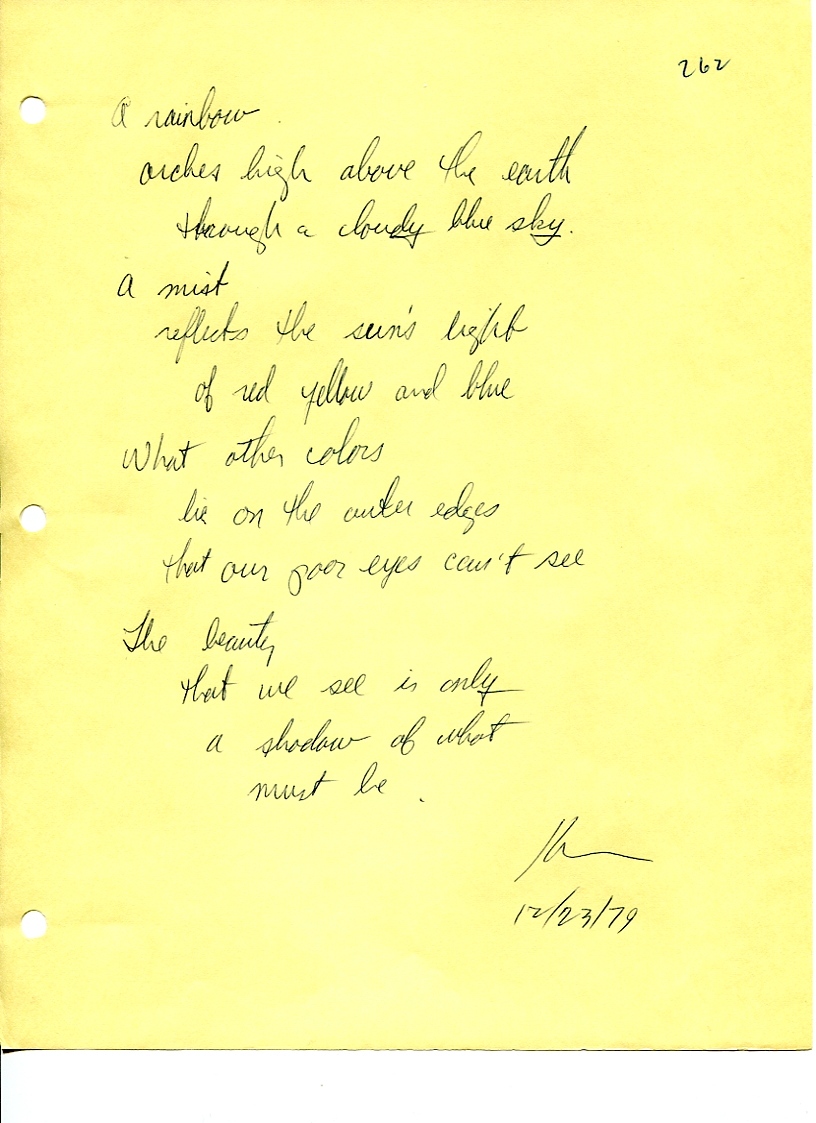 262
A rainbow
arches high above the earth
through a cloudy blue sky.
A mist
reflects the sun's light
of red yellow and blue
What other colors
lie on the outer edges
that our poor eyes can't see
The beauty
that we see is only
a shadow of what
must be.
12/23/79